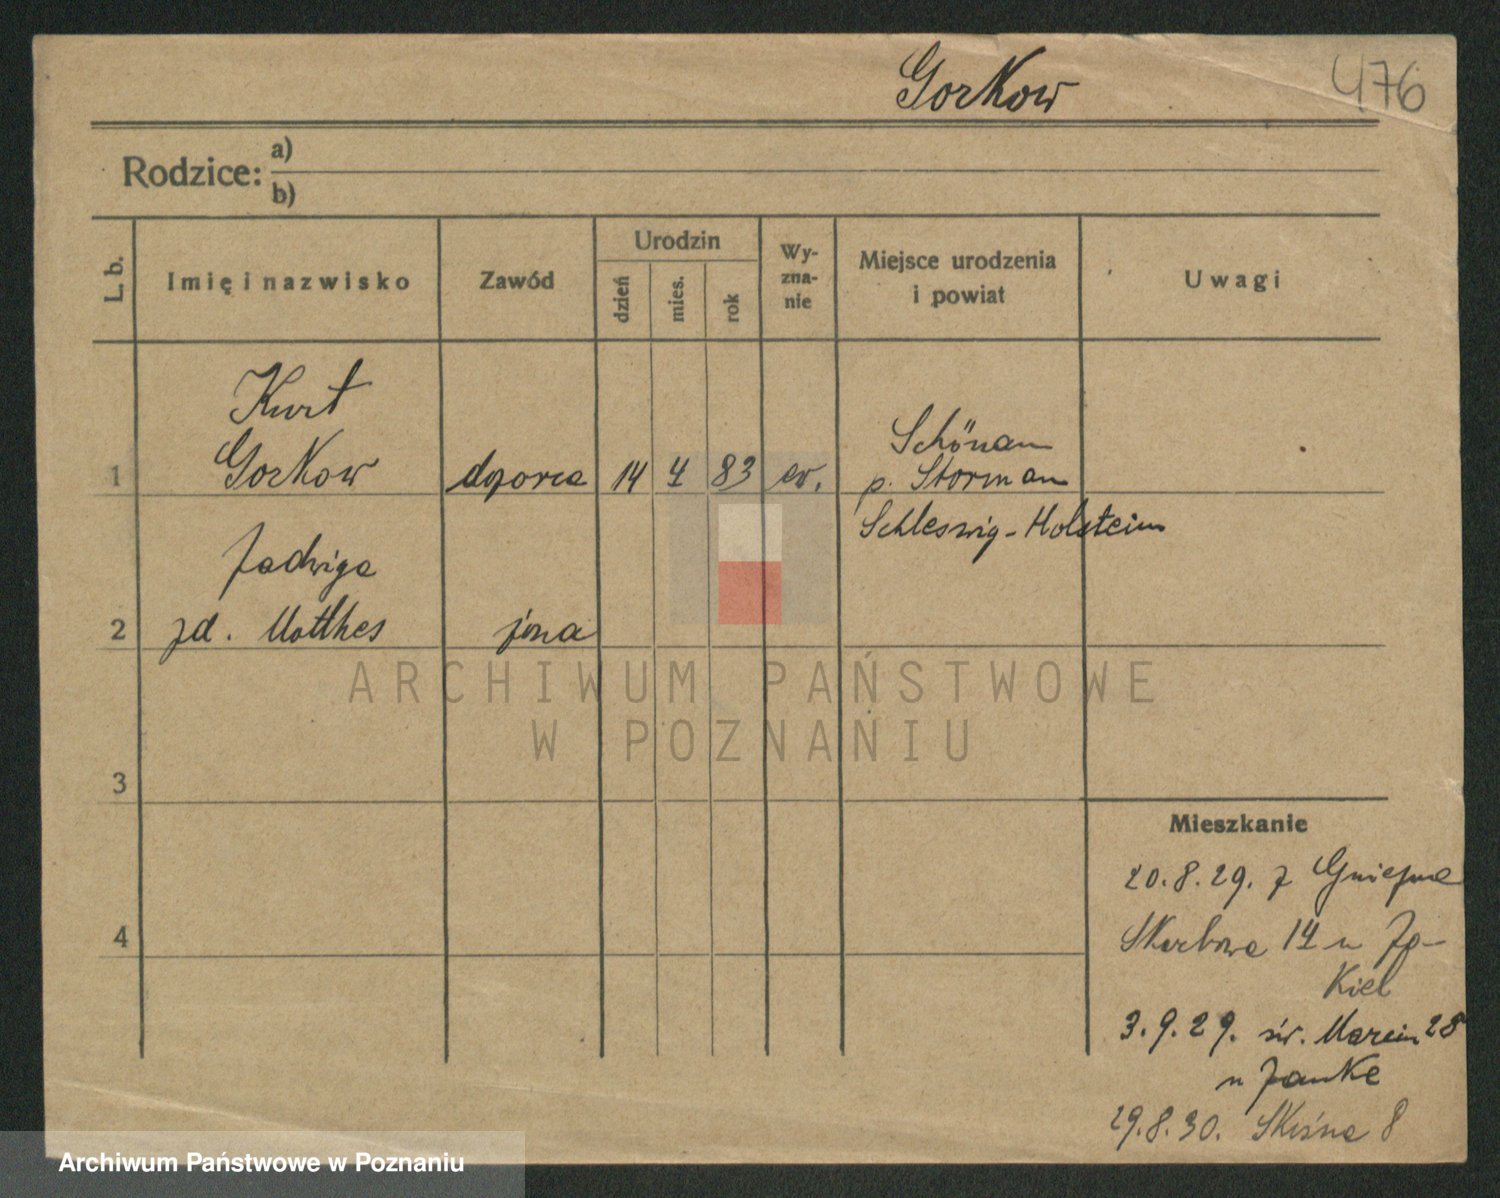 Gorkow
476
Rodzice: a)
b)
L. b.
Imię i nazwisko
Zawód
Urodzin
dzień
mies.
rok
Wy-
zna-
nie
Miejsce urodzenia
i powiat
Uwagi
Kurt
Gorkow
1
dozorca
14
4
83
ew.
Schönau
p. Storman
Schleswig-Holstein
Jadwiga
2
zd. Matthes
żona
3
4
Mieszkanie
20.8.29. z Gniezna
Skarbowa 14 u
Kiel
3.9.29. św. Marcin 28
u Janke
29.8.30. 8
ARCHIWUM PAŃSTWOWE
W POZNANIU
Archiwum Państwowe w Poznaniu